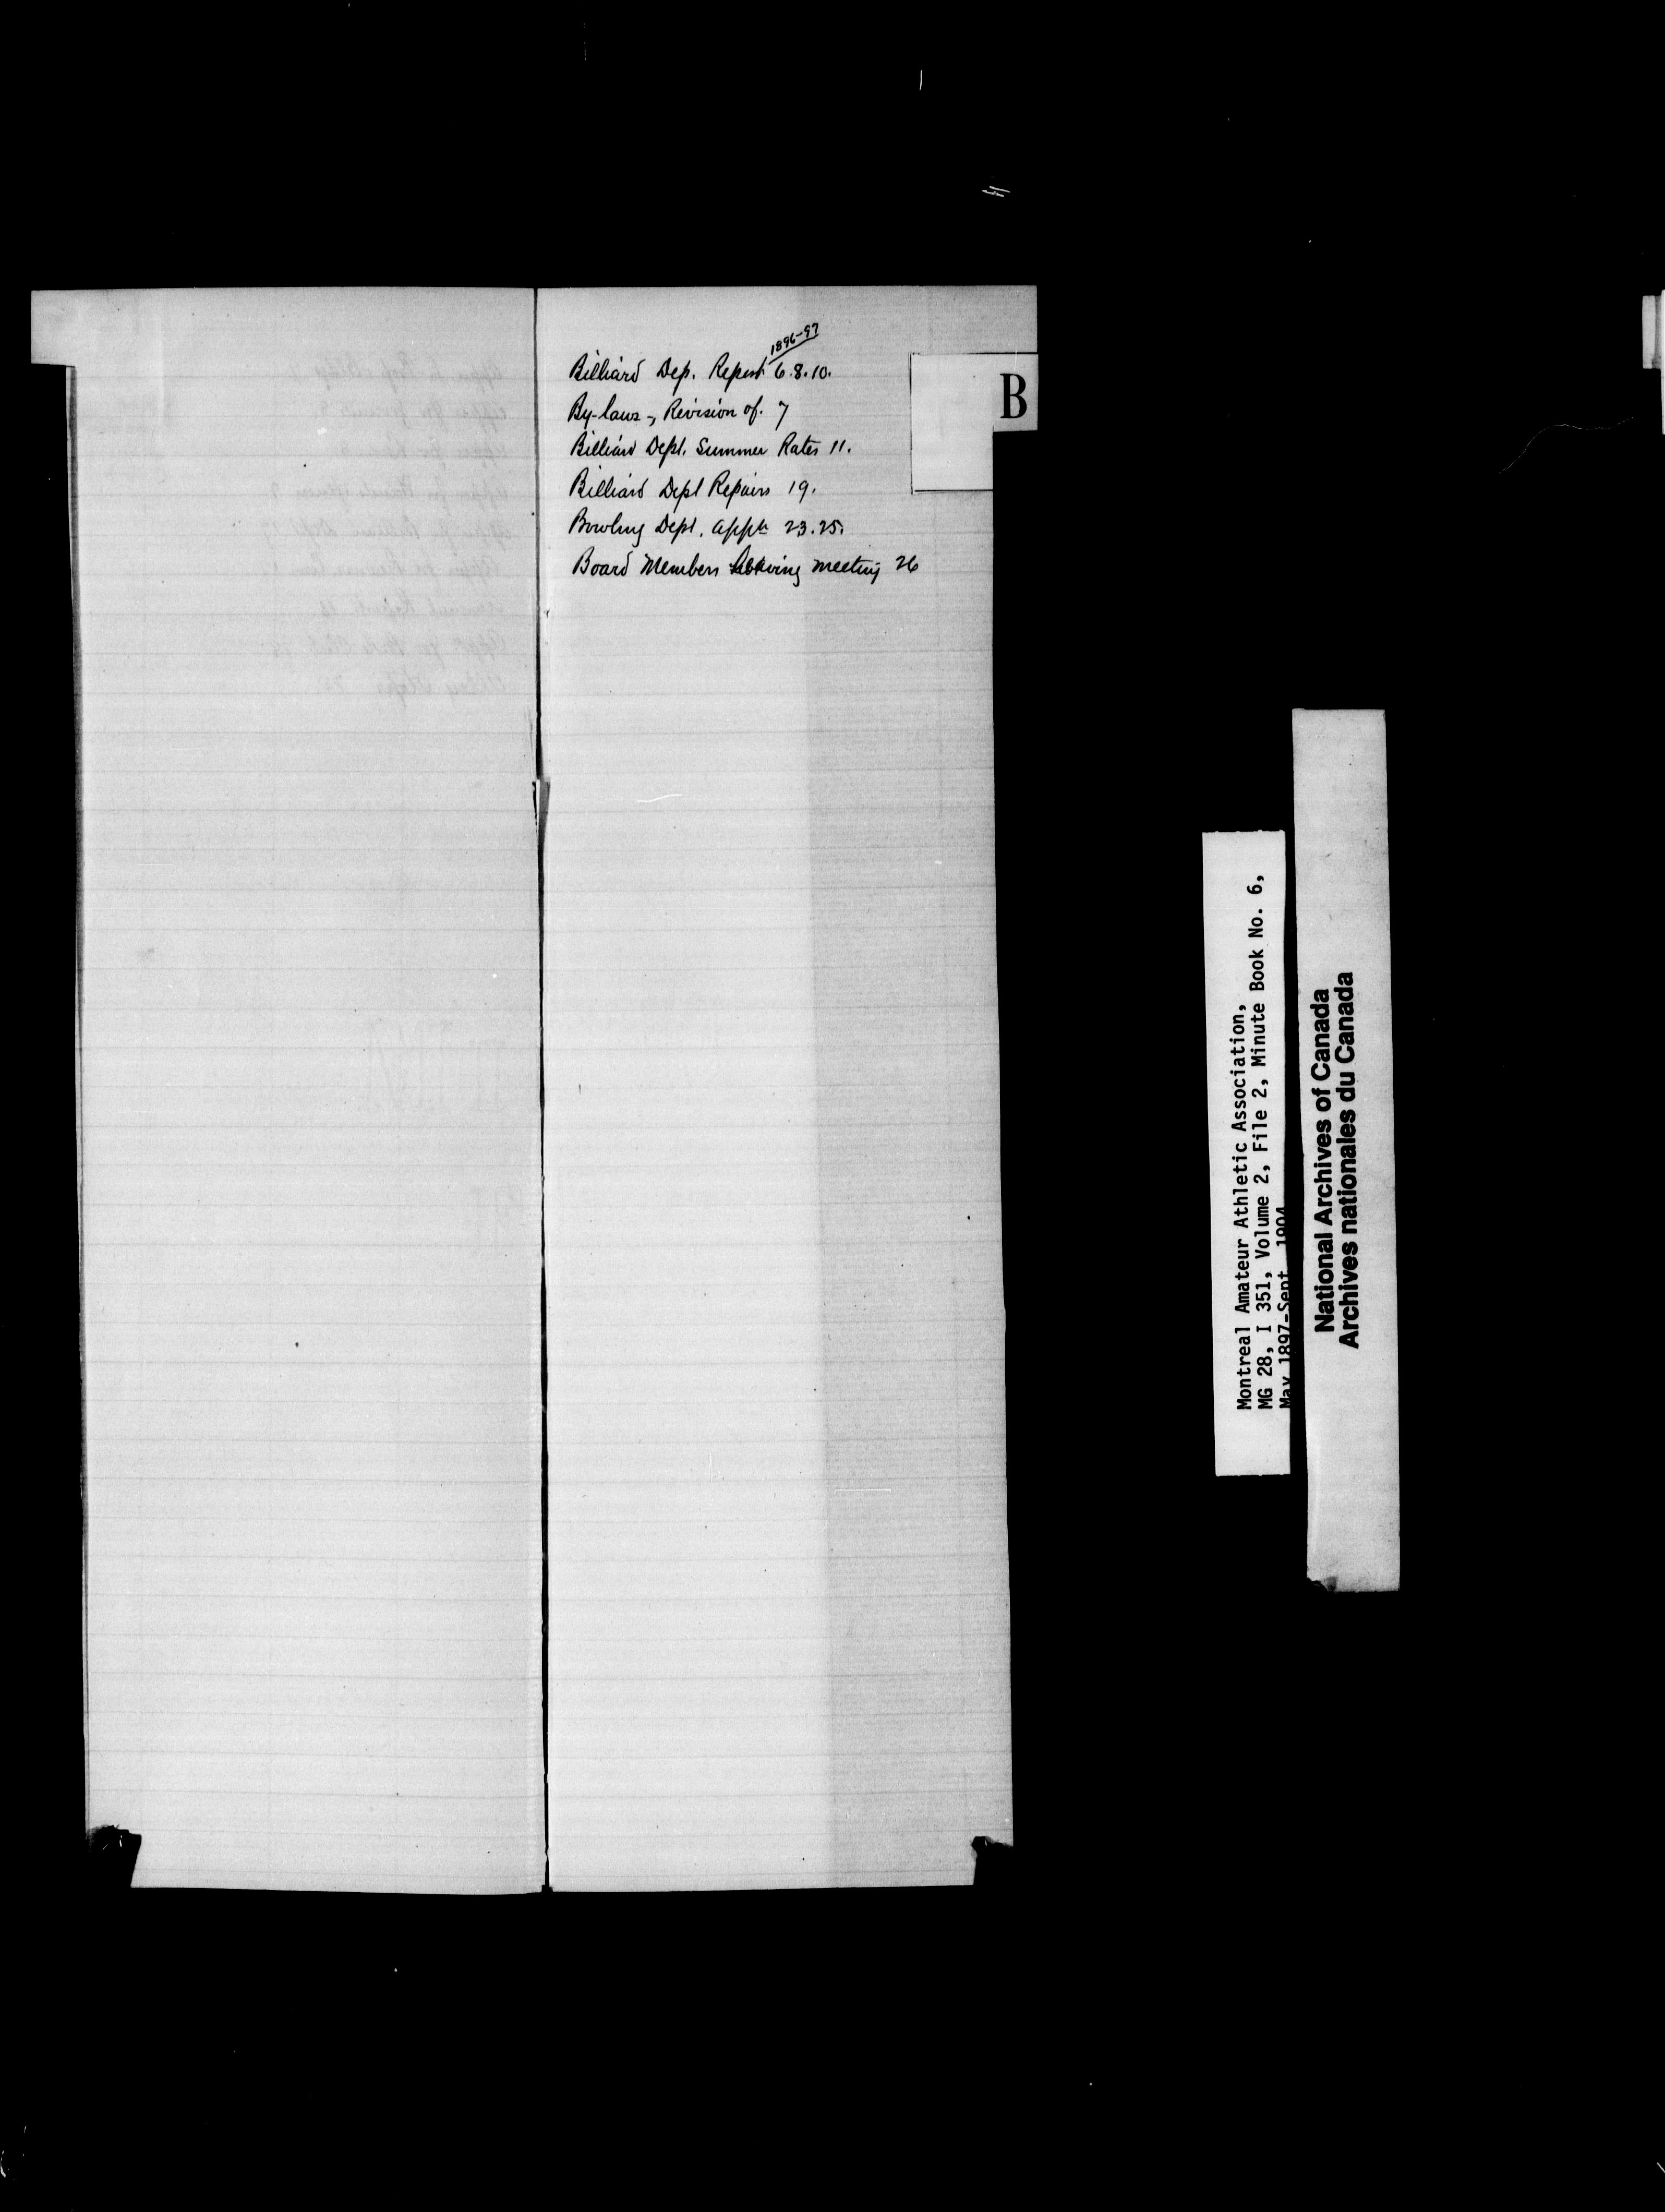 1896-97
Billiard Dep. Report 6.8.10.
By-laws -, Revision of. 7
Billiard Dept. Summer Rates 11.
Billiard Dept Repairs 19.
Bowling Dept. appn 23.25.
Board Members leaving meeting 26
B
Montreal Amateur Athletic Association,
MG 28, I 351, Volume 2, File 2, Minute Book No. 6,
May 1897-Sept 1904
National Archives of Canada
Archives nationales du Canada